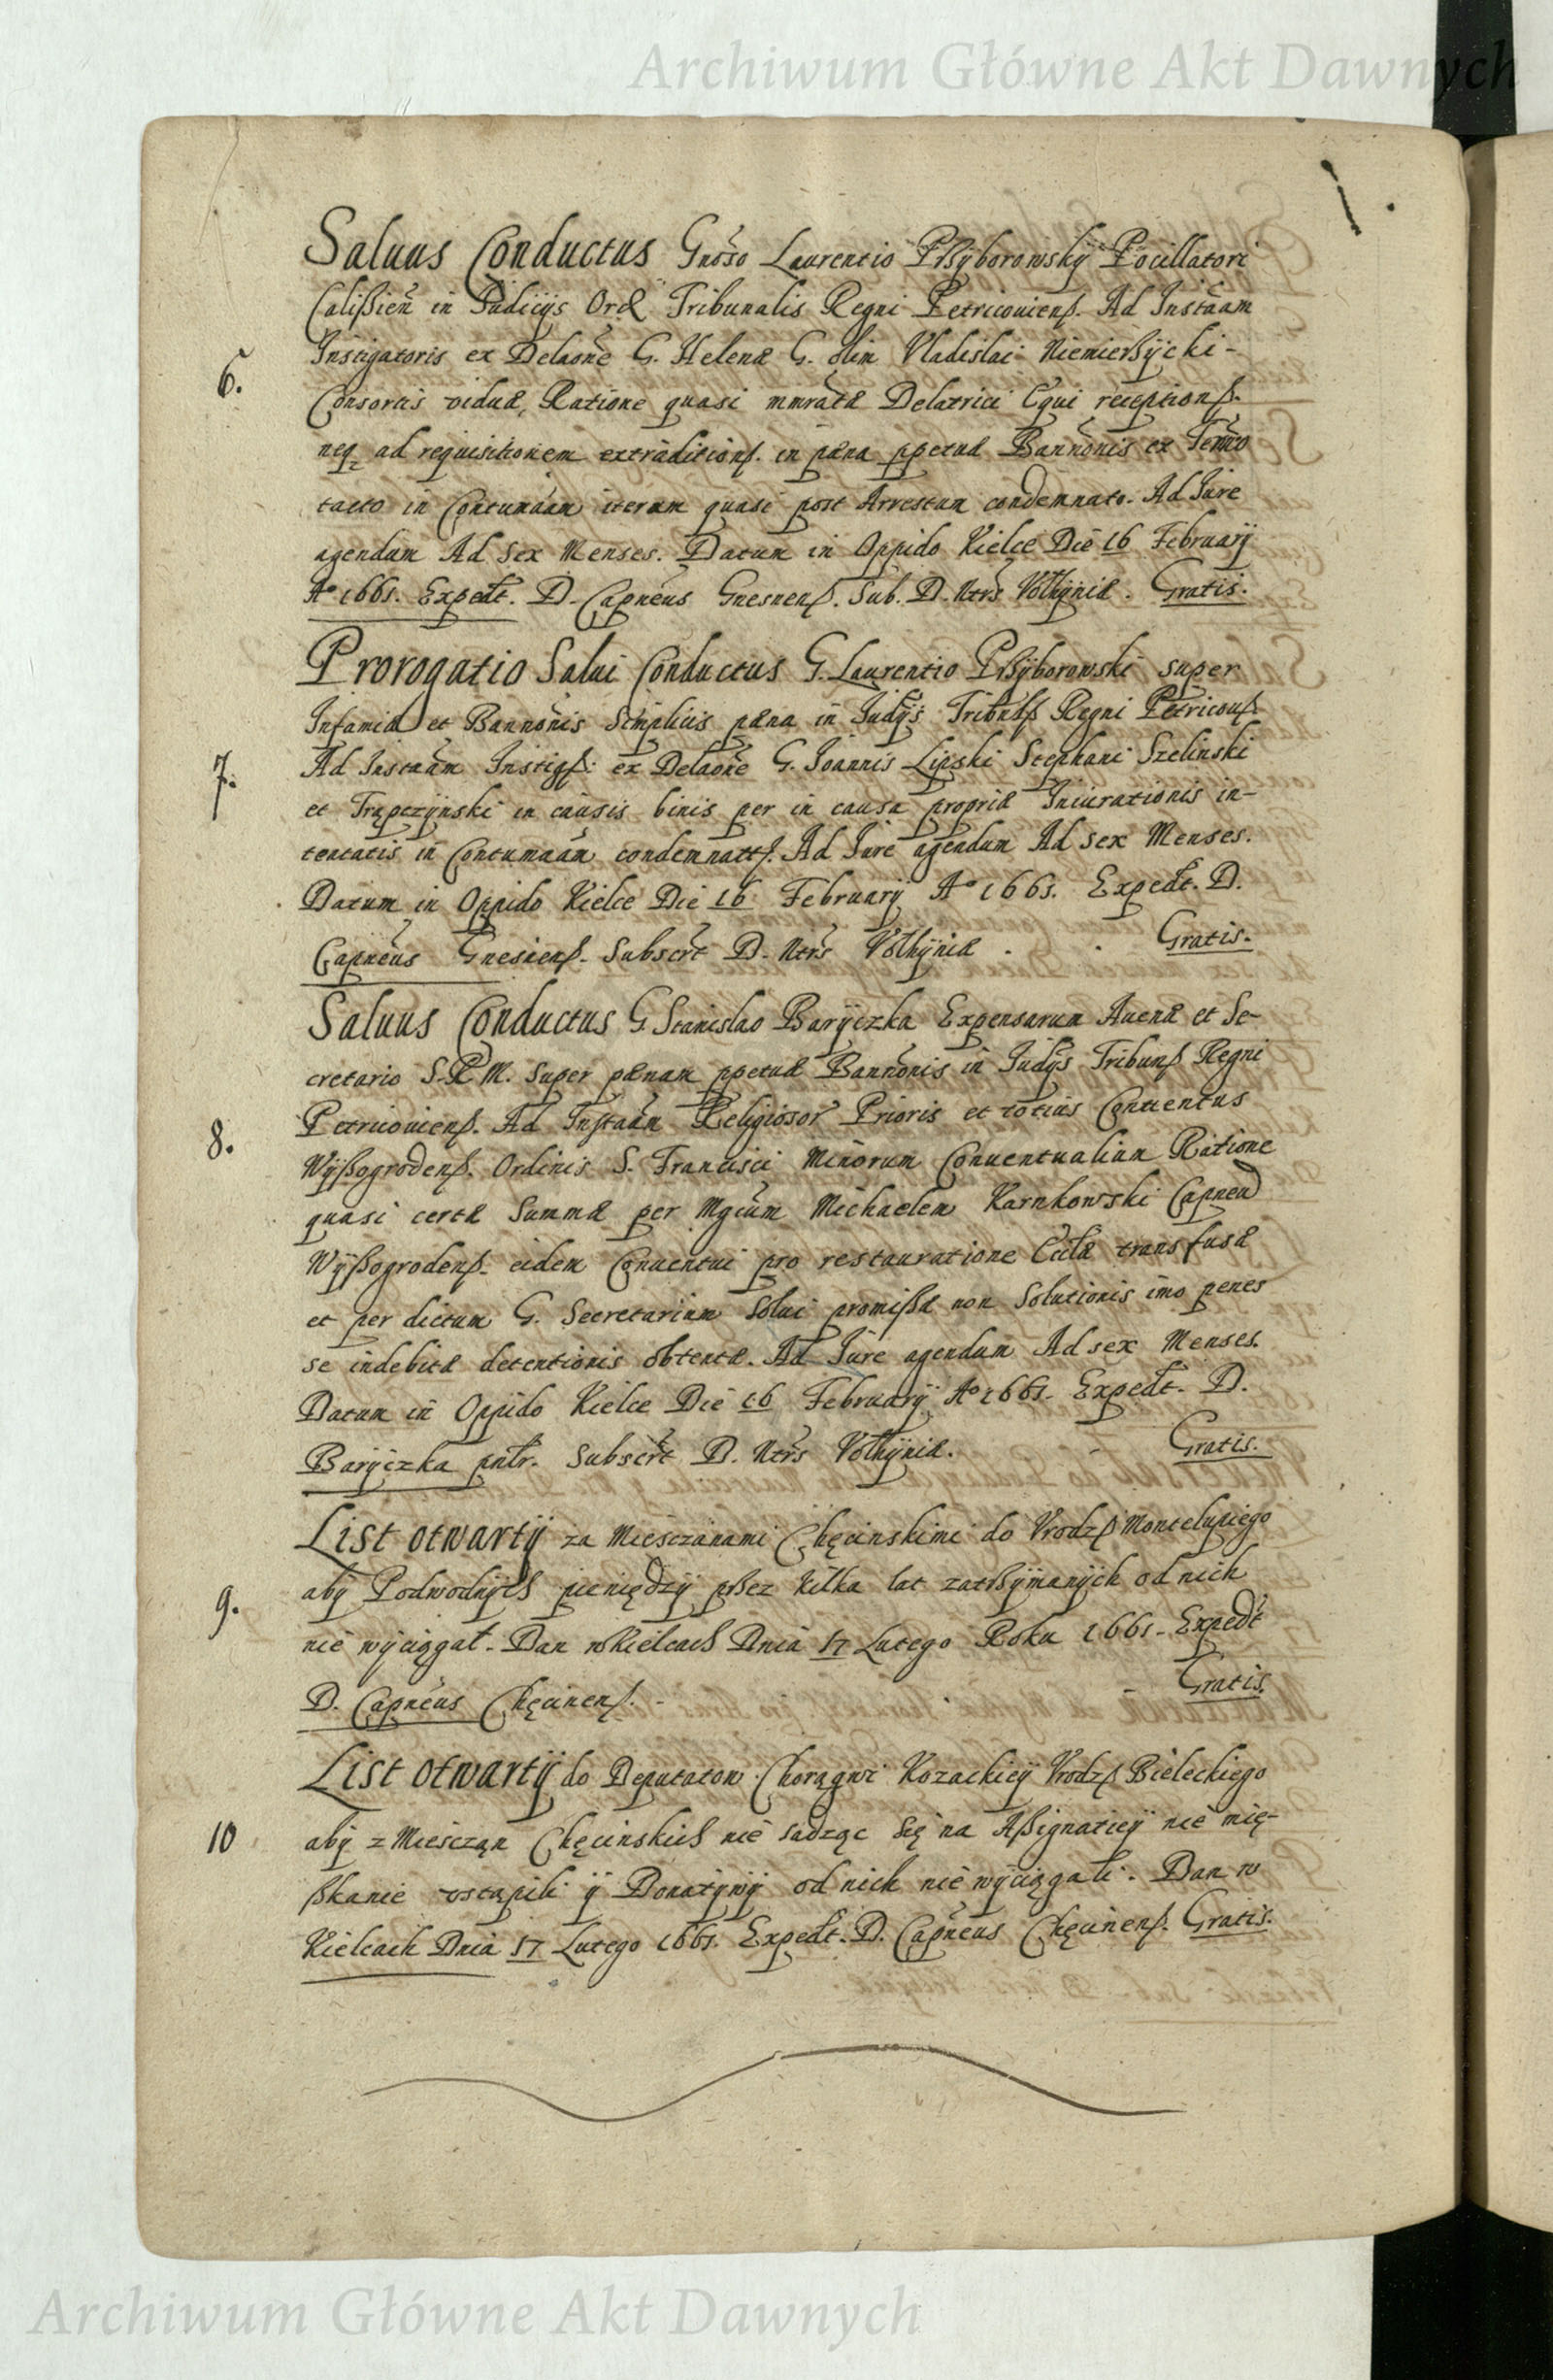 Archiwum Główne Akt Dawnych
Saluus Conductus Gnoso Laurentio Pßÿborowskÿ Pocillatori
Calißien in Judicÿs Ord Tribunalis Regni Petricouienß. Ad Instaam
6. Instigatoris ex Delaone G. Helenæ G. olim Vladislai Niemierßÿcki-
Consortis viduæ, Ratione quasi mmratæ Delatrici Equi receptionß.
neq ad requisitionem extraditionß. in pæna ppetuæ Bannonis ex Termo
tacto in Contumaam iterum quasi post Arrestum condemnato. Ad Jure
agendum Ad sex Menses. Datum in Oppido Kielce Die 16 Februarÿ
Ao 1661. Expedt. D. Capneus Gnesnenß. Sub. D. Ntrs Volhÿniæ. Gratis.
Prorogatio Salui Conductus G. Laurentio Pßÿborowski super
Infamiæ et Bannonis Simplicis pæna in Judÿs Tribulß Regni Petricouß
7. Ad Instaam Instigß. ex Delaone G. Joannis Lipski Stephani Szelinski
et Trąpczÿnski in causis binis per in causa propriæ Iniurationis in-
tentatis in Contumaam condemnattß. Ad Jure agendum Ad sex Menses.
Datum in Oppido Kielce Die 16 Februarÿ Ao 1661. Expedt. D.
Capneus Gnesnenß. Subscrt D. Ntrs Volhÿniæ. - Gratis.
Saluus Conductus G Stanislao Barÿczka Expensarum Auenæ et Se-
cretario S.R.M. super pænam ppetuæ Bannonis in Judÿs Tribunß Regni
8. Petricouienß. Ad Instaam Religiosor Prioris et totius Conuentus
Wÿßogrodenß. Ordinis S. Francisci Minorum Conuentualium Ratione
quasi certæ Summæ per Mgcum Michaelem Karnkowski Capneu
Wÿßogrodenß. eidem Conuentui pro restauratione Eclæ transfusæ
et per dictum G. Secretarium Solui promißæ non Solutionis imo penes
se indebitæ detentionis obtentæ. Ad Jure agendum Ad sex Menses.
Datum in Oppido Kielce Die 16 Februarÿ Ao 1661. Expedt. D.
Barÿczka pntr. Subscrt D. Ntrs Volhÿniæ. - Gratis.
List otwartÿ za Miesczanami Chęcinskimi do Vrodzß Montelupiego
9. abÿ Podwodnÿch pieniędzÿ pßez kilka lat zatßÿmanÿch od nich
nie wÿciągał. Dan w Kielcach Dnia 17 Lutego Roku 1661. Expedt
D. Capneus Chęcinenß. - Gratis.
List otwartÿ do Deputatow Chorągwi Kozackieÿ Vrodzß Bieleckiego
10 abÿ z Miesczan Chęcinskich nie sadząc się na Aßignatieÿ nie mię-
ßkanie vstąpili ÿ Donatÿwÿ od nich nie wÿciągali. Dan w
Kielcach Dnia 17 Lutego 1661. Expedt. D. Capneus Chęcinenß. Gratis.
Archiwum Główne Akt Dawnych